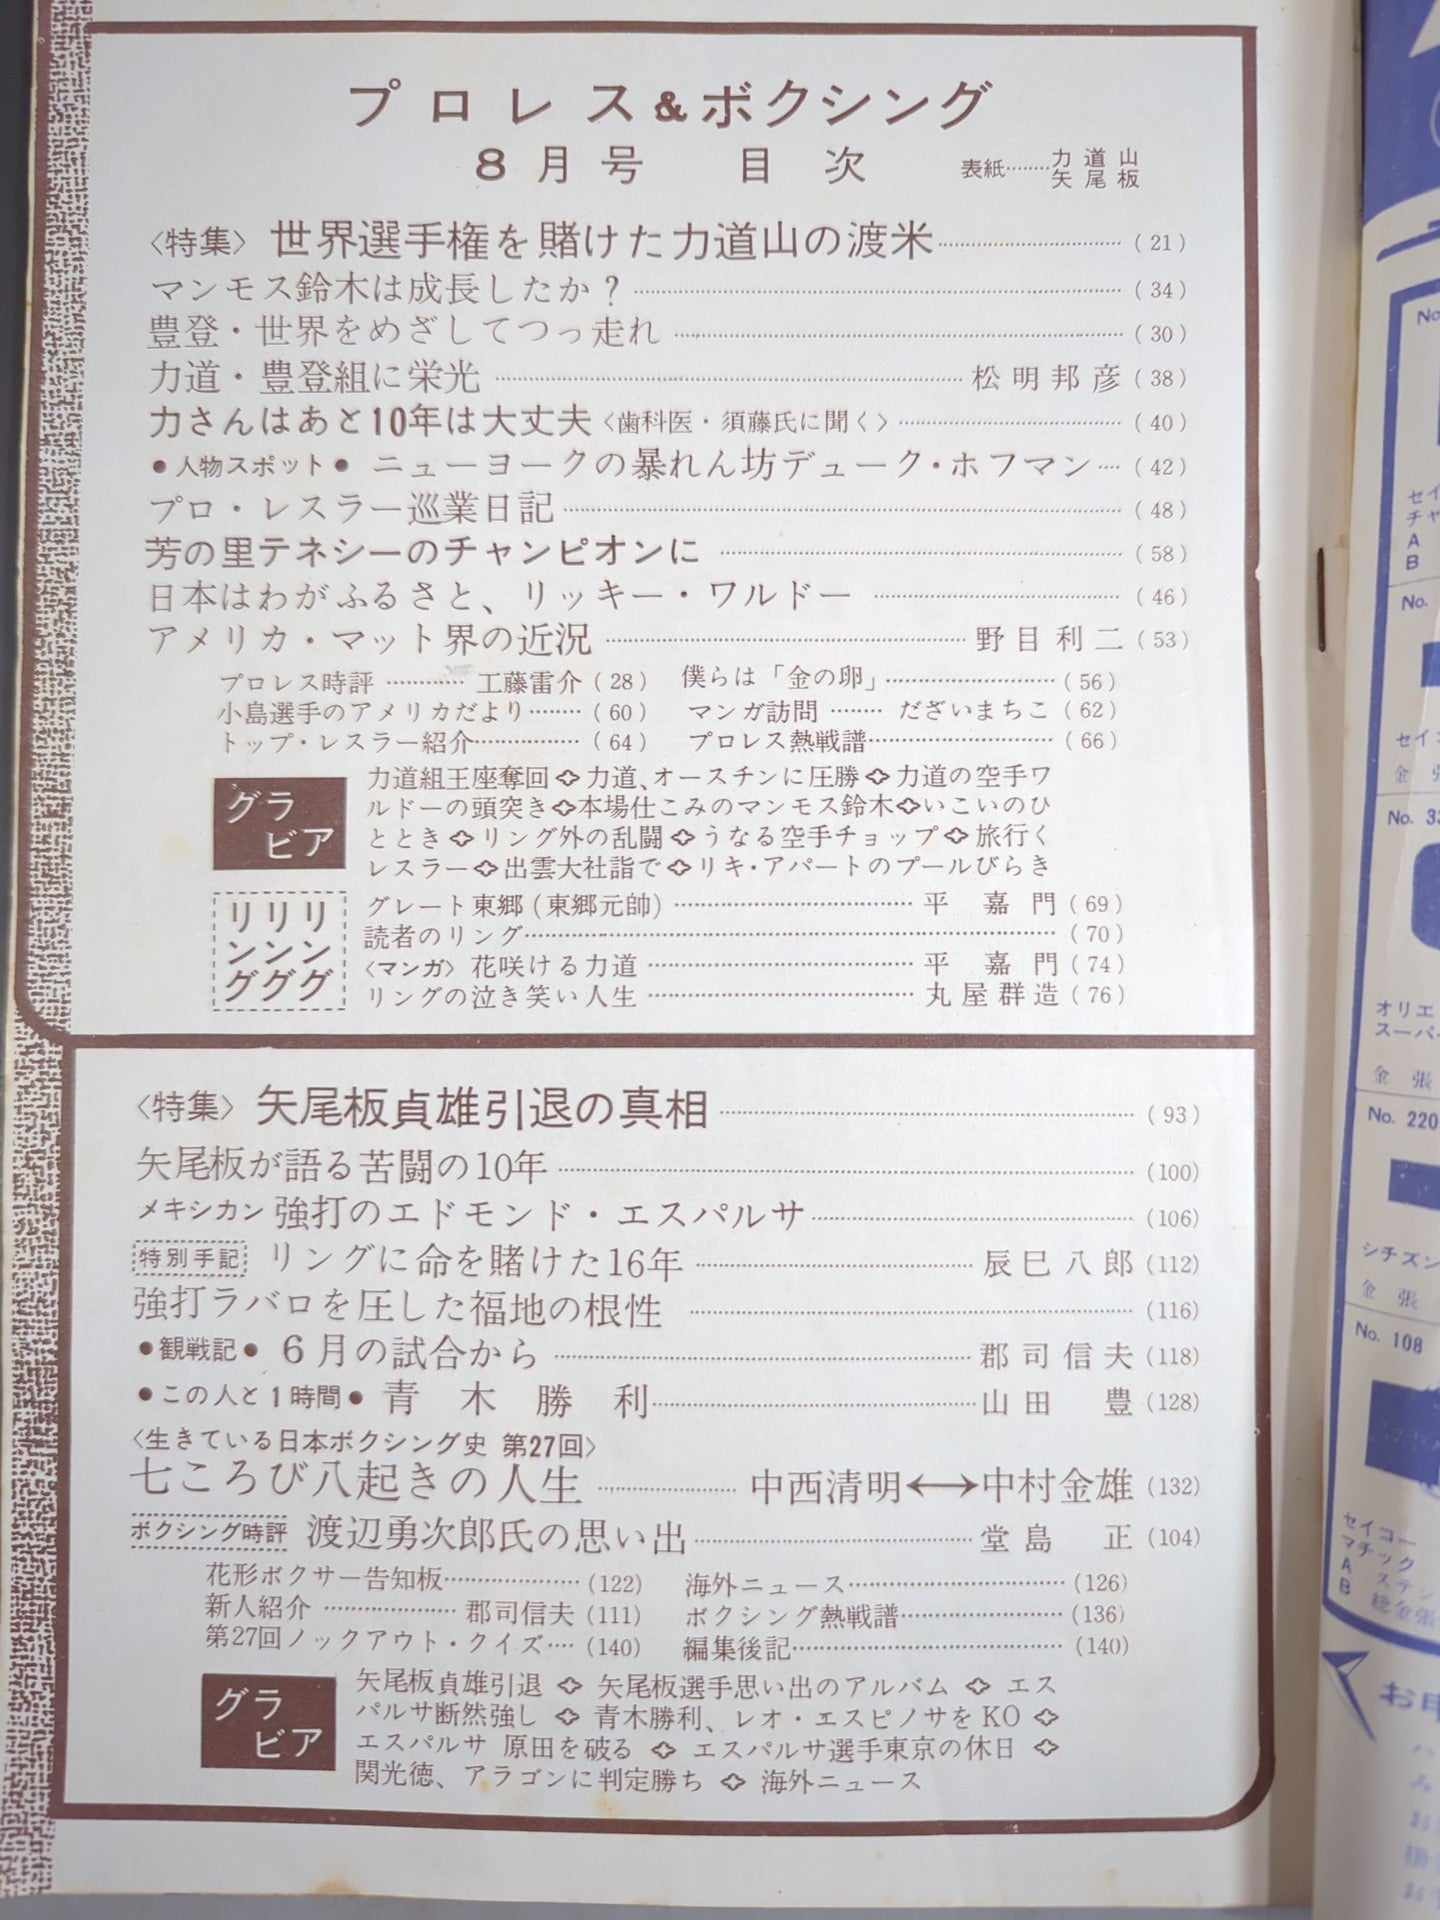 プロレス&ボクシング
8月号 目次 表紙……力道山
矢尾板
〈特集〉 世界選手権を賭けた力道山の渡米……(21)
マンモス鈴木は成長したか?……(34)
豊登・世界をめざしてつっ走れ……(30)
力道・豊登組に栄光……松明邦彦(38)
力さんはあと10年は大丈夫〈歯科医・須藤氏に聞く〉……(40)
●人物スポット● ニューヨークの暴れん坊デューク・ホフマン……(42)
プロ・レスラー巡業日記……(48)
芳の里テネシーのチャンピオンに……(58)
日本はわがふるさと、リッキー・ワルドー……(46)
アメリカ・マット界の近況……野目利二(53)
プロレス時評……工藤雷介(28) 僕らは「金の卵」……(56)
小島選手のアメリカだより……(60) マンガ訪問……だざいまちこ(62)
トップ・レスラー紹介……(64) プロレス熱戦譜……(66)
グラビア
力道組王座奪回❖力道、オースチンに圧勝❖力道の空手ワ
ルドーの頭突き❖本場仕こみのマンモス鈴木❖いこいのひ
ととき❖リング外の乱闘❖うなる空手チョップ❖旅行く
レスラー❖出雲大社詣で❖リキ・アパートのプールびらき
リング リング リング
グレート東郷(東郷元帥)……平 嘉門(69)
読者のリング……(70)
〈マンガ〉花咲ける力道……平 嘉門(74)
リングの泣き笑い人生……丸屋群造(76)
〈特集〉 矢尾板貞雄引退の真相……(93)
矢尾板が語る苦闘の10年……(100)
メキシカン 強打のエドモンド・エスパルサ……(106)
特別手記 リングに命を賭けた16年……辰巳八郎(112)
強打ラバロを圧した福地の根性……(116)
●観戦記● 6月の試合から……郡司信夫(118)
●この人と1時間● 青木勝利……山田 豊(128)
〈生きている日本ボクシング史 第27回〉
七ころび八起きの人生……中西清明⟷中村金雄(132)
ボクシング時評 渡辺勇次郎氏の思い出……堂島 正(104)
花形ボクサー告知板……(122) 海外ニュース……(126)
新人紹介……郡司信夫(111) ボクシング熱戦譜……(136)
第27回ノックアウト・クイズ……(140) 編集後記……(140)
グラビア
矢尾板貞雄引退 ❖ 矢尾板選手思い出のアルバム ❖ エス
パルサ断然強し ❖ 青木勝利、レオ・エスピノサをKO ❖
エスパルサ 原田を破る ❖ エスパルサ選手東京の休日 ❖
関光徳、アラゴンに判定勝ち ❖ 海外ニュース
No.
セイ
チャ
A
B
No.
セイコ
金 張
No. 33
オリエ
スーパー
金 張
No. 220
シチズン
金 張
No. 108
セイコー
マチック
A ステン
B 総金張
お申